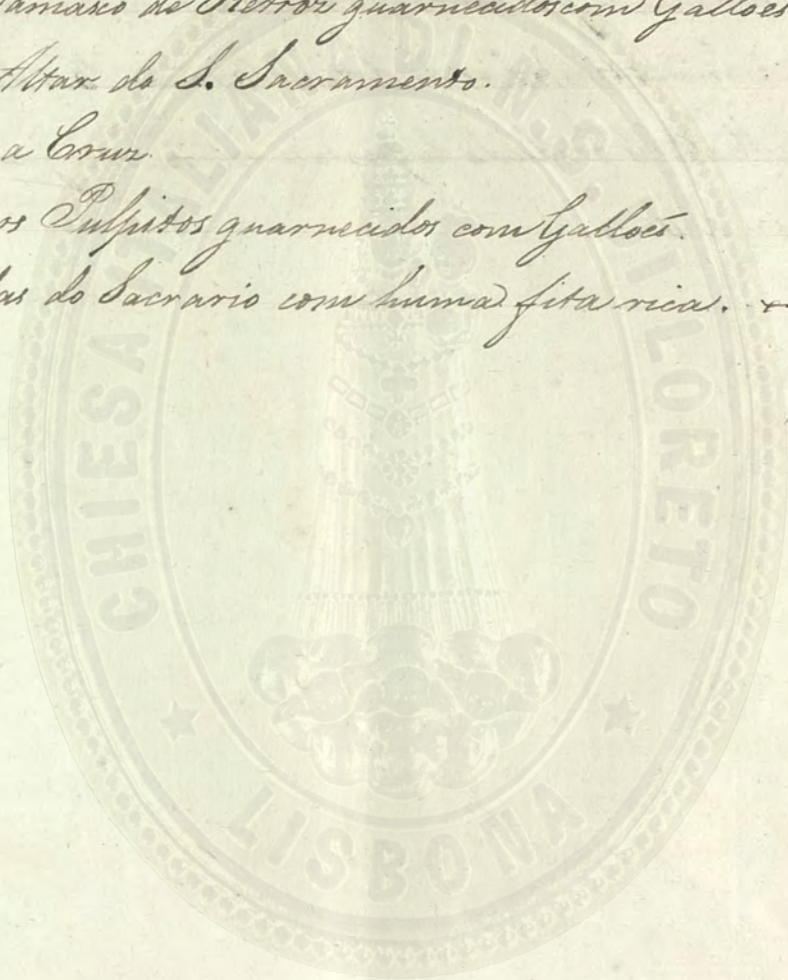 Damasco de Retroz guarnecidos com Galloēs
Altar do S. Sacramento.
a Cruz.
os Pulpitos guarnecidos com Galloēs.
das do Sacrario com huma fita rica.
CHIESA ITALIANA DI N. S. DI LORETO
LISBONA